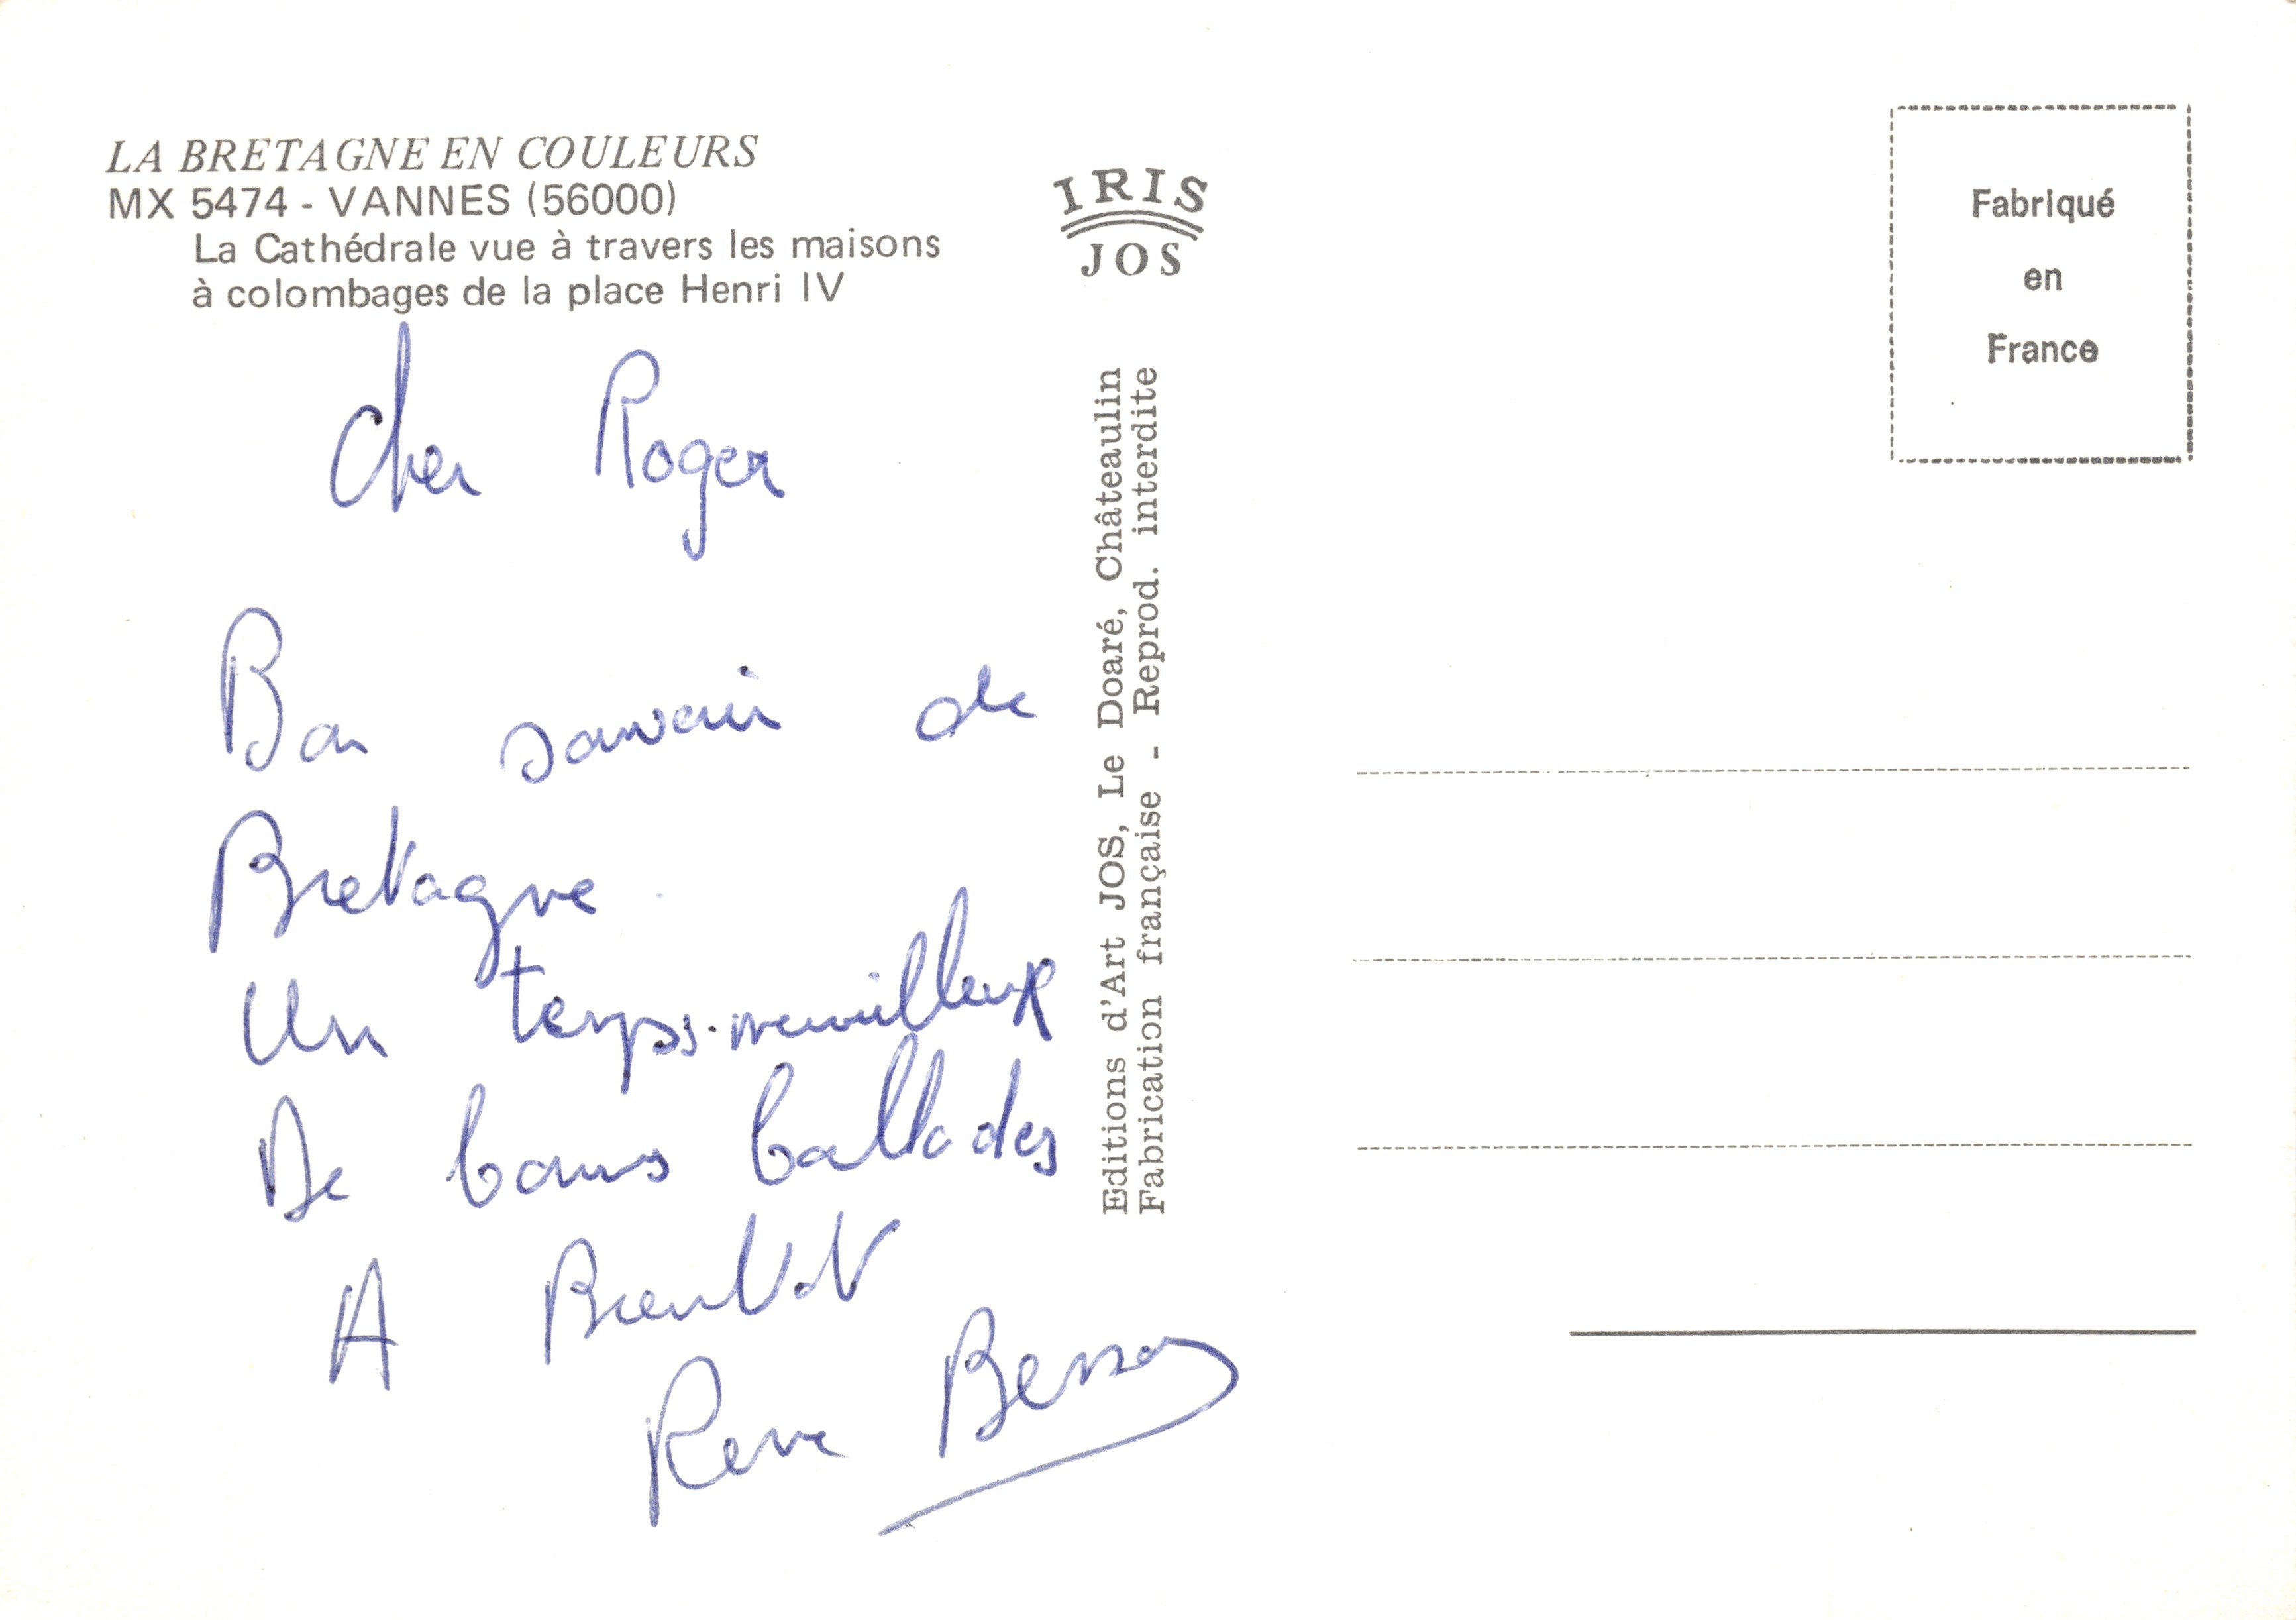 LA BRETAGNE EN COULEURS
MX 5474 - VANNES (56000)
La Cathédrale vue à travers les maisons
à colombages de la place Henri IV
IRIS
JOS
Fabriqué
en
France
Editions d'Art JOS, Le Doaré, Châteaulin
Fabrication française - Reprod. interdite
Cher Roger
Bon souvenir de
Bretagne
Un temps merveilleux
De bonnes ballades
A Bientot
Rene